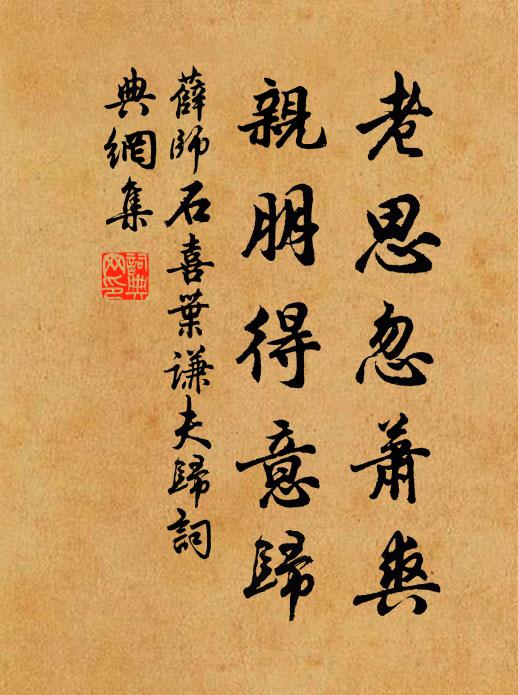 老思忽蕭爽
親朋得意歸
薛師石喜葉謙夫歸詞
典網集
詞典
网印